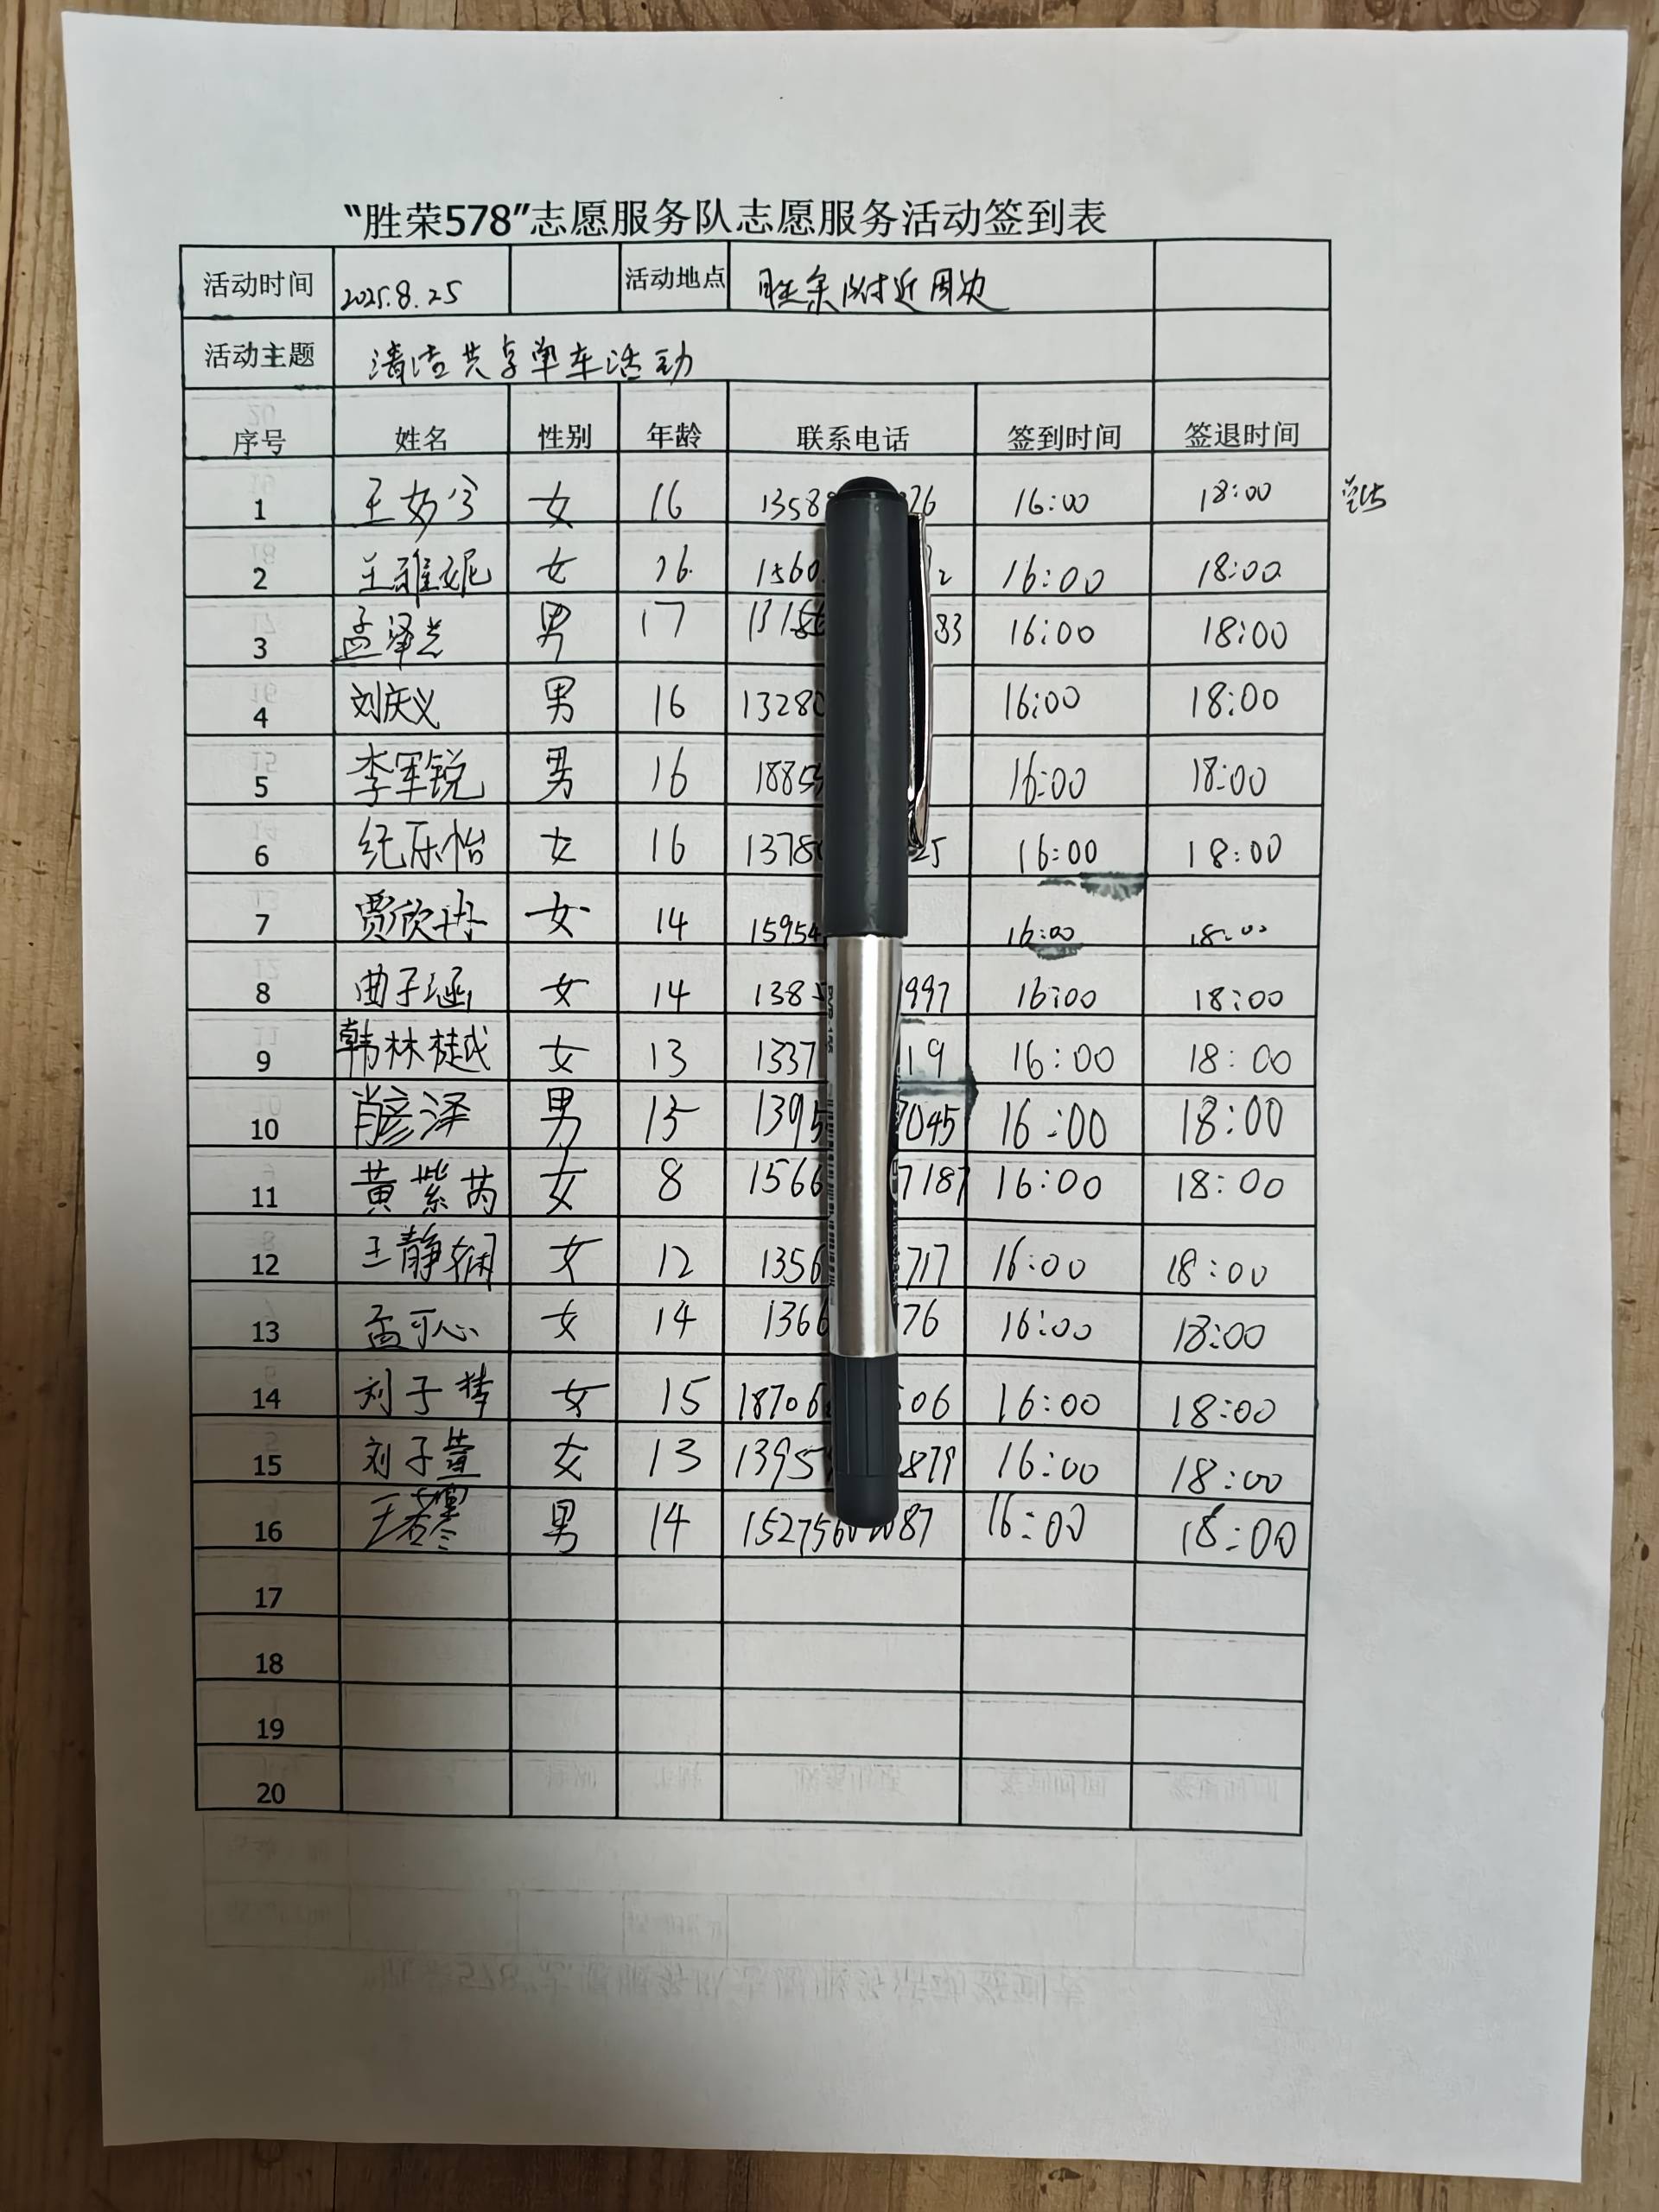 “胜荣578”志愿服务队志愿服务活动签到表
活动时间 2025.8.25 活动地点 胜荣附近周边
活动主题 清洁共享单车活动
序号 姓名 性别 年龄 联系电话 签到时间 签退时间
1 女 16 1358 26 16:00 18:00
2 王雅妮 女 16 1560 2 16:00 18:00
3 男 17 83 16:00 18:00
4 刘庆义 男 16 1328 16:00 18:00
5 李军锐 男 16 188 16:00 18:00
6 纪乐怡 女 16 1378 25 16:00 18:00
7 贾欣 女 14 15954 16:00 18:00
8 曲子涵 女 14 138 997 16:00 18:00
9 韩林樾 女 13 1337 19 16:00 18:00
10 肖彦泽 男 15 1395 7045 16:00 18:00
11 黄紫芮 女 8 1566 7187 16:00 18:00
12 王静娴 女 12 1356 717 16:00 18:00
13 孟可心 女 14 1366 76 16:00 18:00
14 刘子 女 15 18706 506 16:00 18:00
15 刘子萱 女 13 1395 879 16:00 18:00
16 男 14 152756 87 16:00 18:00
17
18
19
20